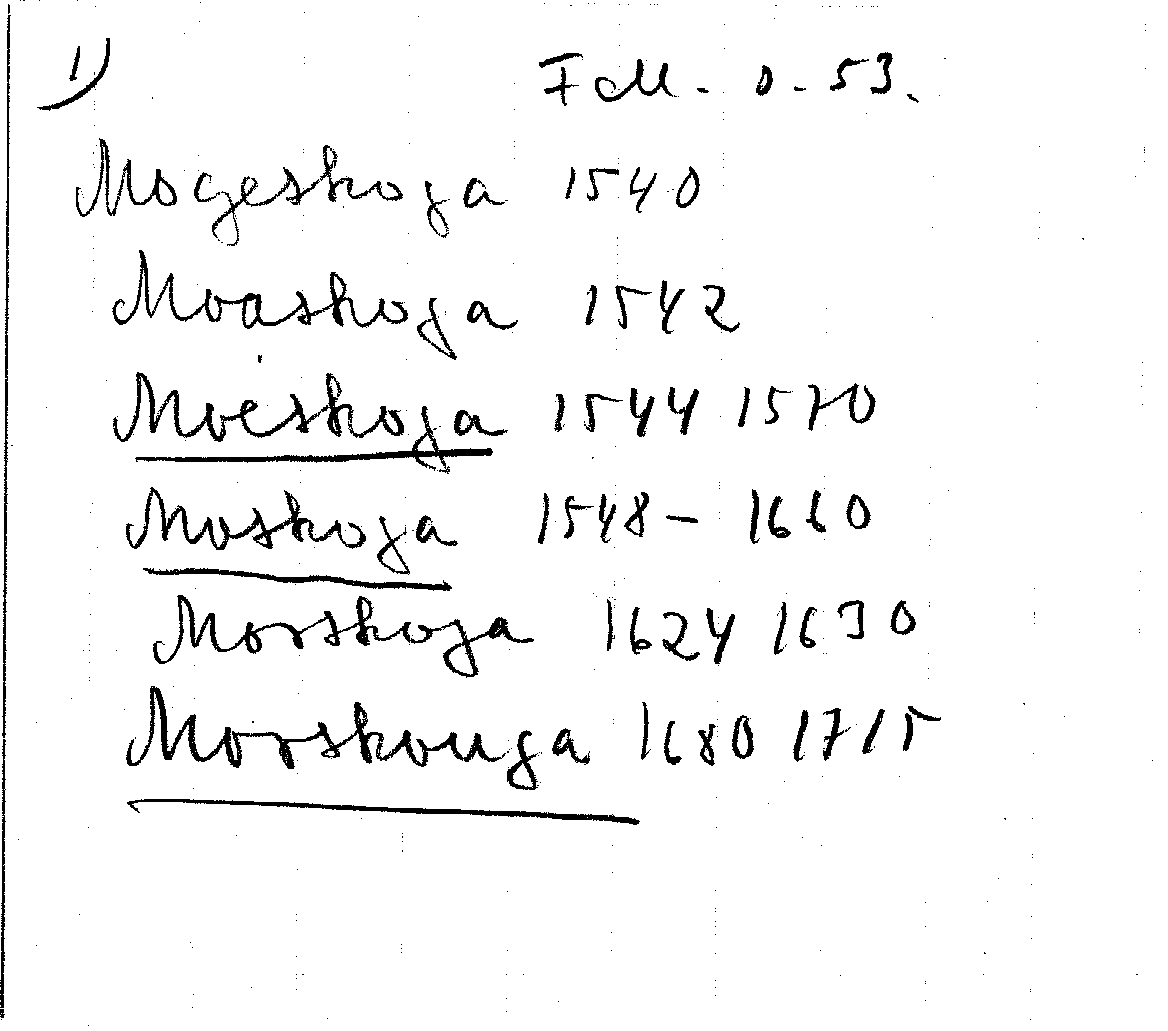 1) F M. 0. 53.
Mogeskoja 1540
Moaskoja 1542
Moëskoja 1544 1570
Moskoja 1548 - 1660
Morskoja 1624 1630
Morskouga 1680 1715